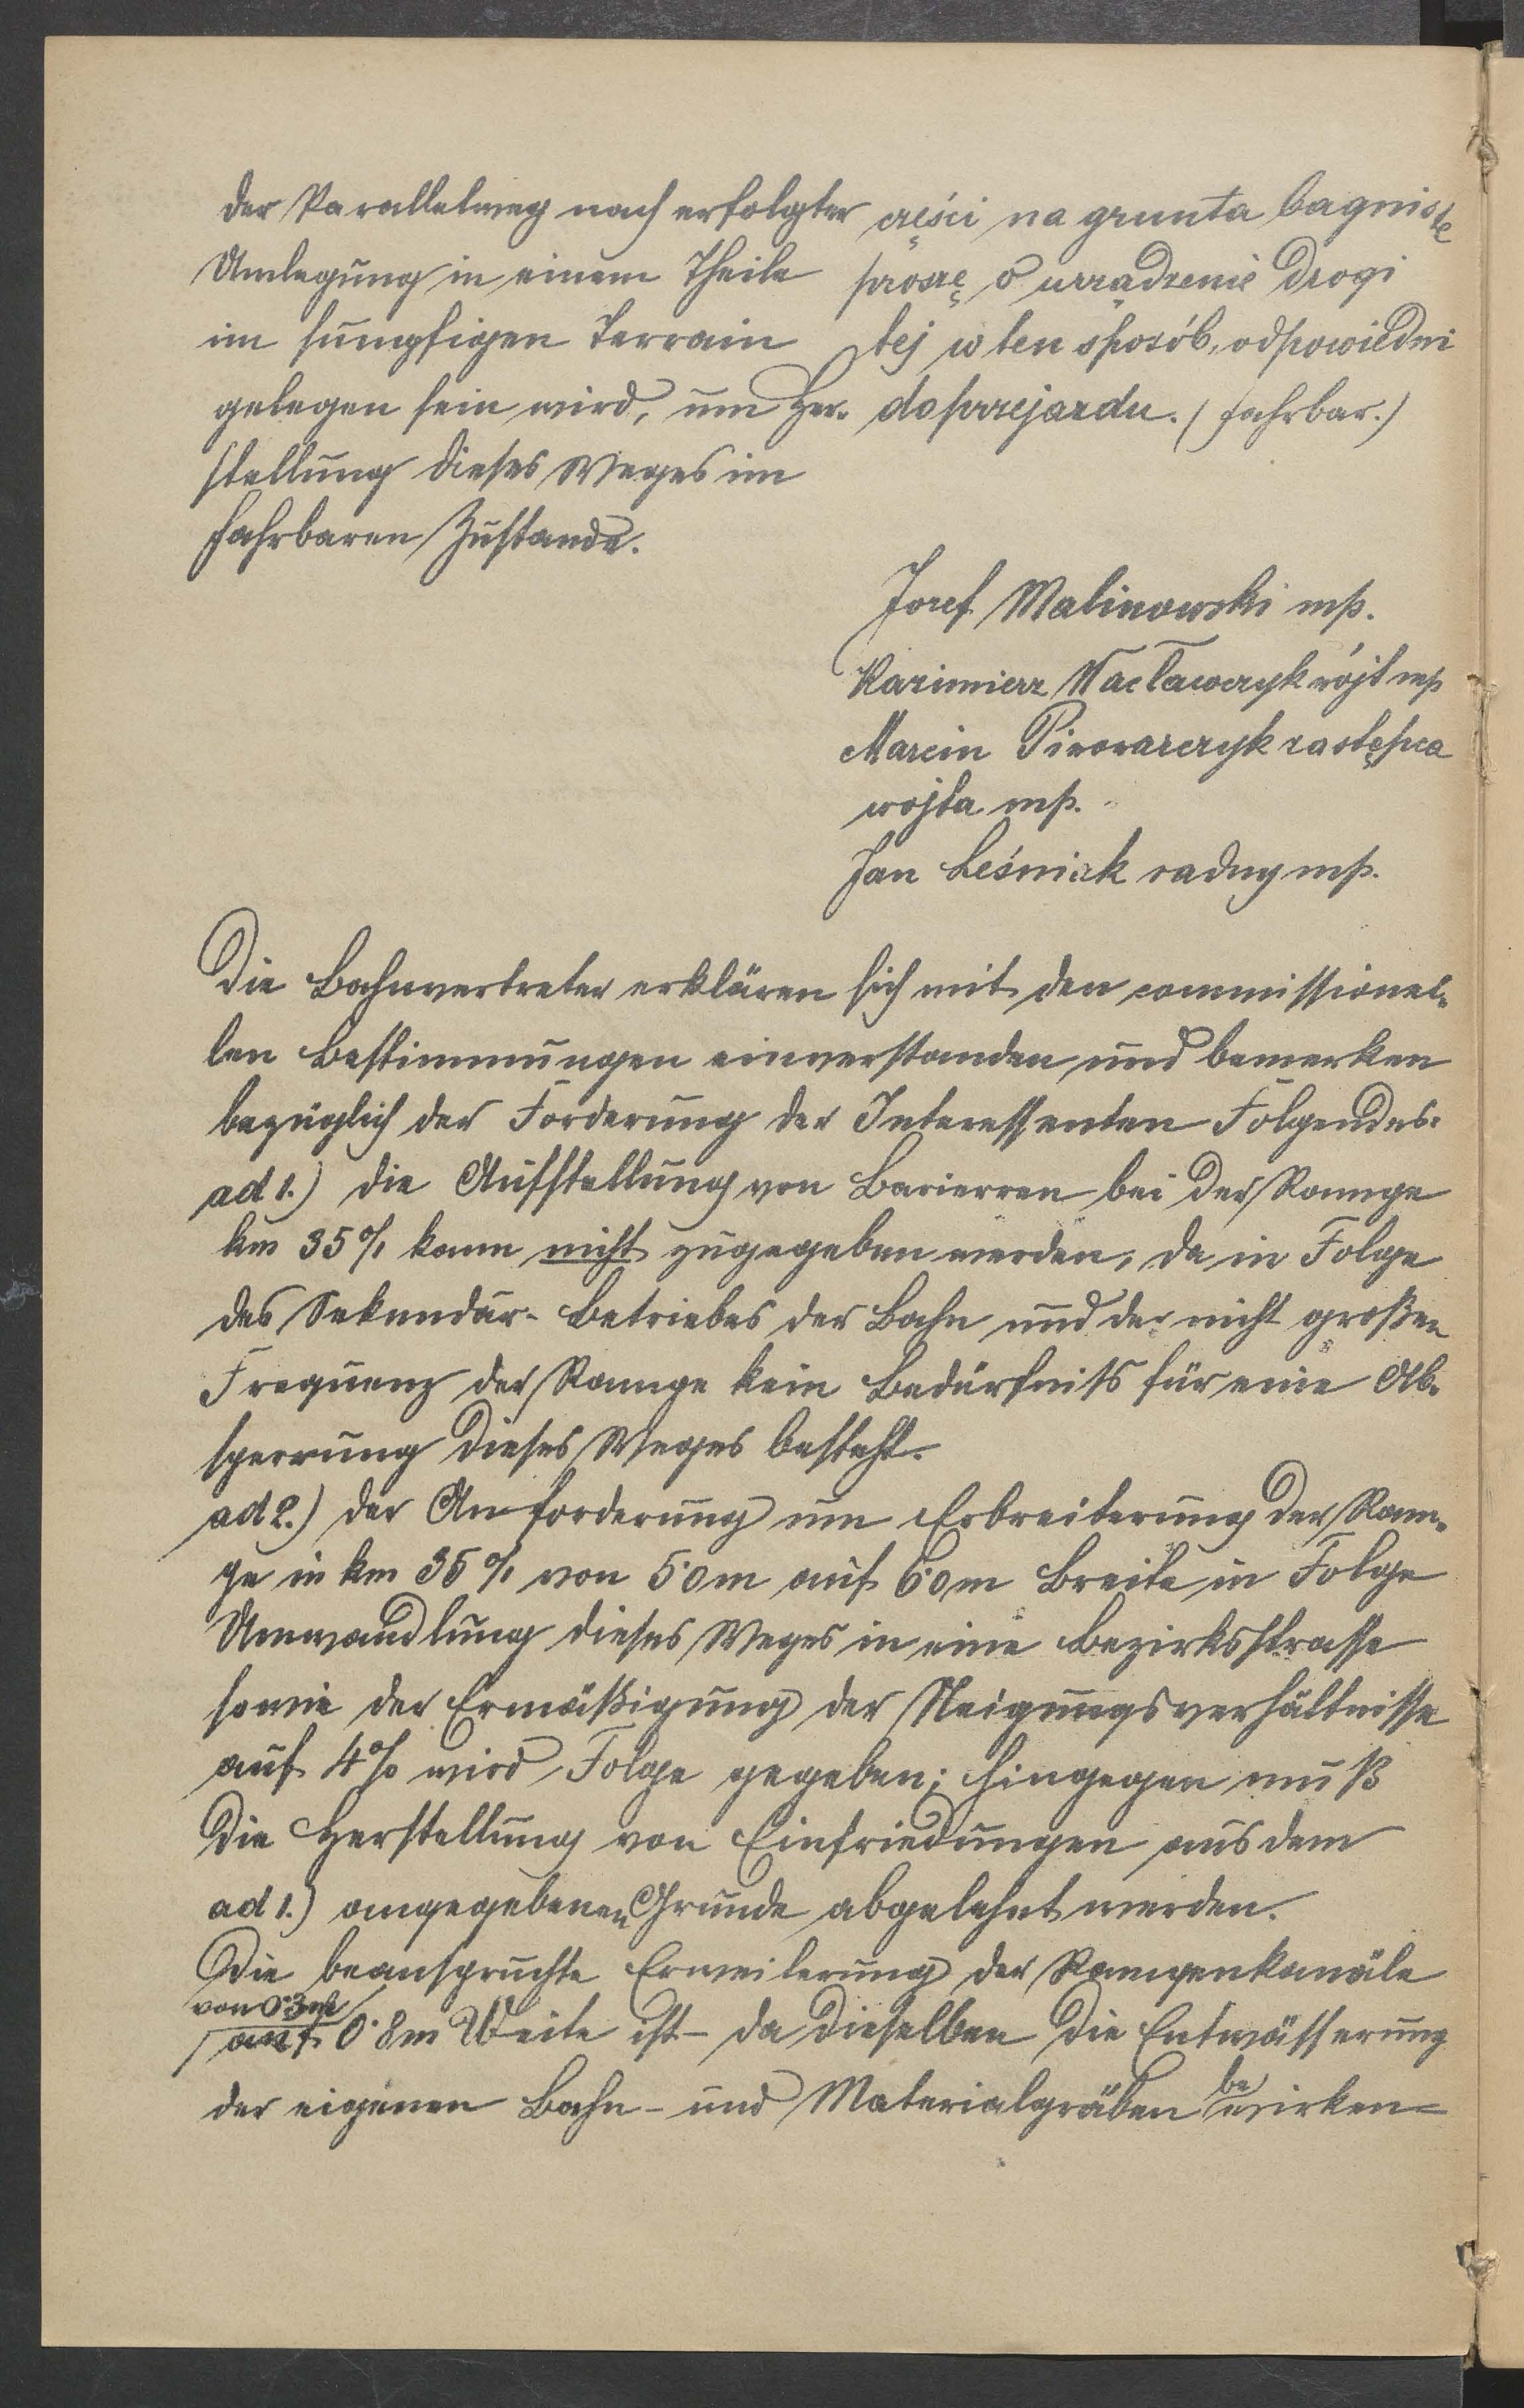 der Parallelweg nach erfolgter
Umlegung in einem Theile
im sumpfigen Terrain
gelegen sein wird, um Her-
stellung dieses Weges im
fahrbaren Zustande.
części na grunta bagniste
proszę o urządzenie drogi
tej w ten sposób, odpowiedni
do przejazdu. (fahrbar.)
Josef Malinowski mp.
Kazimierz Wacławczyk wójt mp
Marcin Piwowarczyk zastępca
wójta mp.
Jan Leśniak radny mp.
Die Bahnvertreter erklären sich mit den commissionel-
len Bestimmungen einverstanden und bemerken
bezüglich der Forderung der Interessenten Folgendes:
ad 1.) die Aufstellung von Barierren bei der Rampe
km 35 0/1 kann nicht zugegeben werden, da in Folge
des Sekundär-Betriebes der Bahn und der nicht großen
Frequenz der Rampe kein Bedürfniß für eine Ab-
sperrung dieses Weges besteht.
ad 2.) der Anforderung um Erbreiterung der Ram-
pe in km 35 0/1 von 5·0m auf 6·0m Breite in Folge
Umwandlung dieses Weges in eine Bezirksstrasse
sowie der Ermäßigung der Neigungsverhältnisse
auf 4% wird Folge gegeben; hingegen muß
die Herstellung von Einfriedungen aus dem
ad 1.) angegebenen Grunde abgelehnt werden.
Die beanspruchte Erweiterung der Rampenkanäle
von 0·3m
auf 0·8m Weite ist - da dieselben die Entwässerung
der eigenen Bahn- und Materialgräben bewirken -